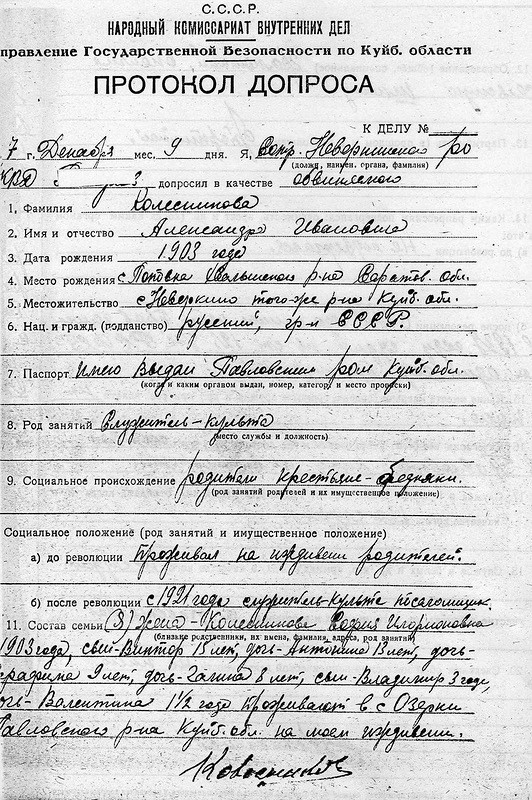 С.С.С.Р.
НАРОДНЫЙ КОМИССАРИАТ ВНУТРЕННИХ ДЕЛ
правление Государственной Безопасности по Куйб. области
ПРОТОКОЛ ДОПРОСА
К ДЕЛУ №
7 г. Декабря мес. 9 дня. Я, Сотр. Неверкинского ро
(должн., наимен. органа, фамилия)
допросил в качестве обвиняемого
1. Фамилия Колесникова
2. Имя и отчество Александра Ивановича
3. Дата рождения 1903 года
4. Место рождения с р-на Саратов. обл.
5. Местожительство с Неверкино того-же р-на Куйб. обл.
6. Нац. и гражд. (подданство) русский, гр-н СССР.
7. Паспорт имею выдан Павловским ром Куйб. обл.
(когда и каким органом выдан, номер, категор. и место прописки)
8. Род занятий Служитель-культа
(место службы и должность)
9. Социальное происхождение родители крестьяне-бедняки.
(род занятий родителей и их имущественное положение)
Социальное положение (род занятий и имущественное положение)
а) до революции Проживал на иждивени родителей.
б) после революции с 1921 года служитель-культа псаломщик.
11. Состав семьи жена-Колесникова София
(близкие родственники, их имена, фамилии, адреса, род занятий)
1903 года, сын-Виктор 15 лет, дочь-Антонина 13 лет, дочь-
9 лет, дочь-Галина 8 лет, сын-Владимир 3 года,
очь-Валентина 1½ года проживают в с Озерки
Павловского р-на Куйб. обл. на моем иждивении.